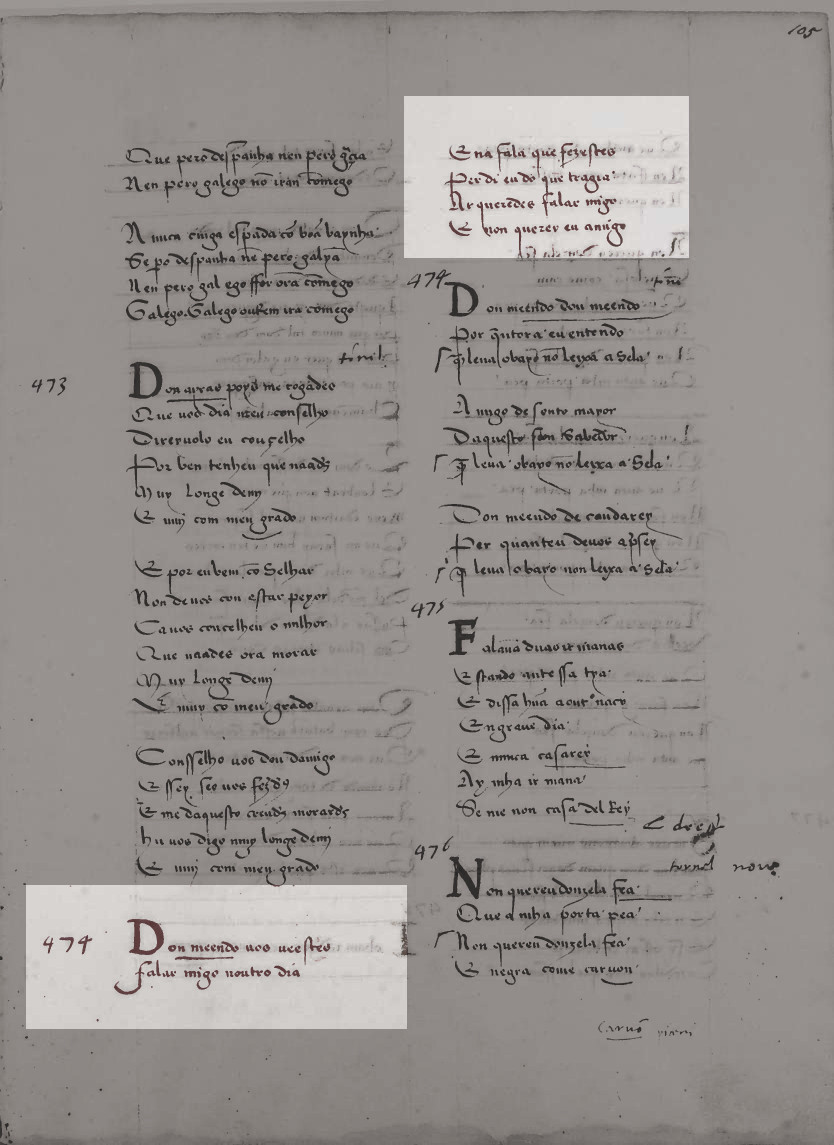 105
Que pero despanha nen pero gͣcia
Nen pero galego nō iran comego
Nunca cinga espada cō boā baynha
Se po despanha nē pero galyza
Nen pero gal ego ffor ora comego
Galego. Galego outrem ira comego
tornel
473
Don ayras poys me rogades
Que uos dia meu conselho
Direyuolo eu concelho
Por ben tenheu que uaads
Muy longe demj
E muj com meu grado
E por eu bem cō Selhar
Non deuos con estar peyor
Ca uos concelheu o milhor
Que uaades ora morar
Muy longe demj
E muy co meu grado
Consselho uos dou damigo
E ssey seo uos fezds
E me daquesto creuds morards
hu uos digo muy longe demj
E muj com meu grado
474
Don meendo uos ueestes
falar migo noutro dia
E na fala que fezestes
Perdi eu do que tragia
Ar queredes falar migo
E non querer eu amigo
474
Don meendo don meendo
Por quntora eu entendo
q̄ leua obayo nō leyxa a Sela
Amigo de souto mayor
Daquesto son Sabedor
q̄ leua obayo nō leyxa a Sela
Don meendo de candarey
Per quanteu deuos apsey
q̄ leua obayo non leyxa a Sela
475
Falauā duas irmanas
Estando ante ssa tya
E dissa hūa a outͣ naçy
En graue dia
E nunca casarey
Ay mha ir mana
Se me non casa del Rey
476
tornel
Non quereu donzela fea
Que a mha porta pea
Non quereu donzela fea
E negra come caruon
Caruō